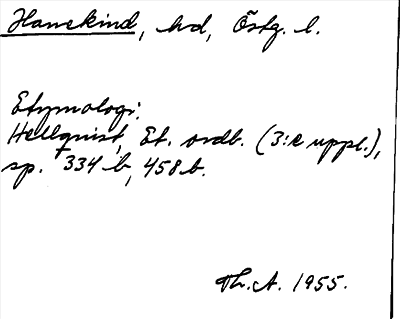 Hanekind, hd, Östg. l.
Etymologi:
Hellquist, Et. ordb. (3:e uppl.),
sp. 334 b, 458 b.
Th. A. 1955.